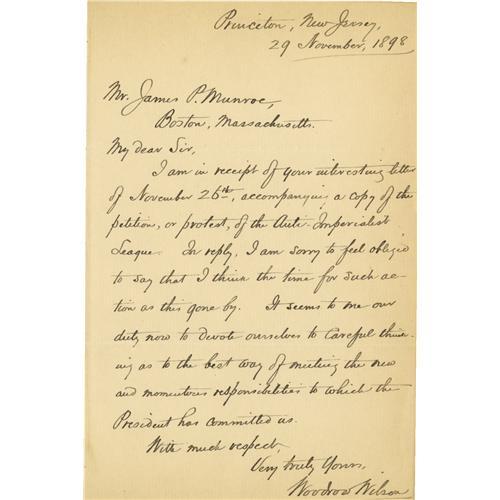 Princeton, New Jersey,
29 November, 1898
Mr. James P. Munroe,
Boston, Massachusetts.
My dear Sir,
I am in receipt of your interesting letter
of November 26th, accompanying a copy of the
petition, or protest, of the Anti-Imperialist
League. In reply, I am sorry to feel obliged
to say that I think the time for such ac-
tion as this gone by. It seems to me our
duty now to devote ourselves to careful think-
ing as to the best way of meeting the new
and momentous responsibilities to which the
President has committed us.
With much respect,
Very truly Yours,
Woodrow Wilson